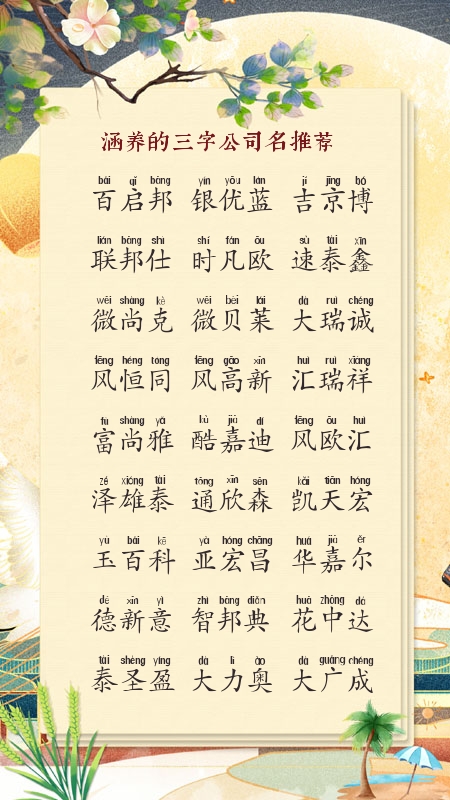 涵养的三字公司名推荐
bǎi qǐ bāng yín yōu lán jí jīng bó
百启邦 银优蓝 吉京博
lián bāng shì shí fán ōu sù tài xīn
联邦仕 时凡欧 速泰鑫
wēi shàng kè wēi bèi lái dà ruì chéng
微尚克 微贝莱 大瑞诚
fēng héng tóng fēng gāo xīn huì ruì xiáng
风恒同 风高新 汇瑞祥
fù shàng yǎ kù jiā dí fēng ōu huì
富尚雅 酷嘉迪 风欧汇
zé xióng tài tōng xīn sēn kǎi tiān hóng
泽雄泰 通欣森 凯天宏
yù bǎi kē yà hóng chāng huá jiā ěr
玉百科 亚宏昌 华嘉尔
dé xīn yì zhì bāng diǎn huā zhōng dá
德新意 智邦典 花中达
tài shèng yíng dà lì ào dà guǎng chéng
泰圣盈 大力奥 大广成